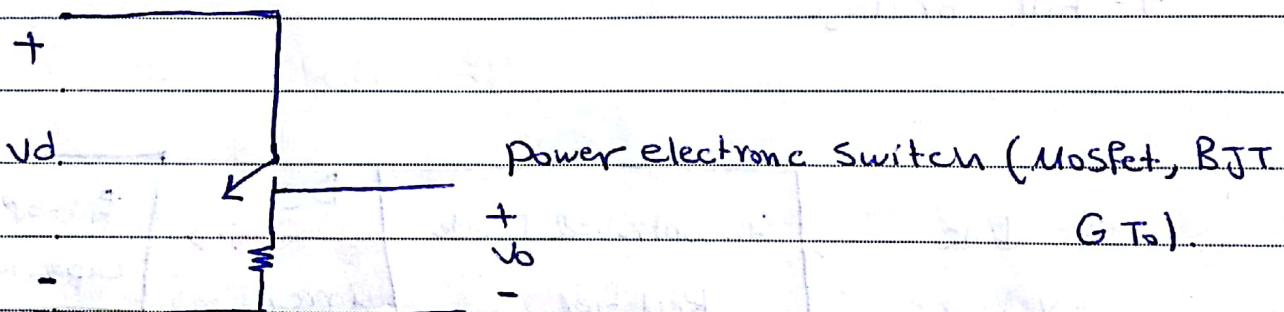 +
Vd
power electronc switch (Mosfet, BJT
GTo).
+
Vo
-
-